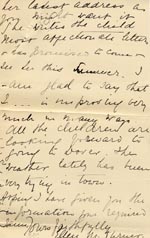 her latest address as
you might want
to write the child
most affectionate letter
& has promised to come &
see her this summer. I
am glad to say that
I... is improving very
much in many ways
All the children are
looking forward to
going to Dover. The
weather lately has been
very trying in town.
Hoping I have given you the
information you required
Yours faithfully
Ellen M. Turner